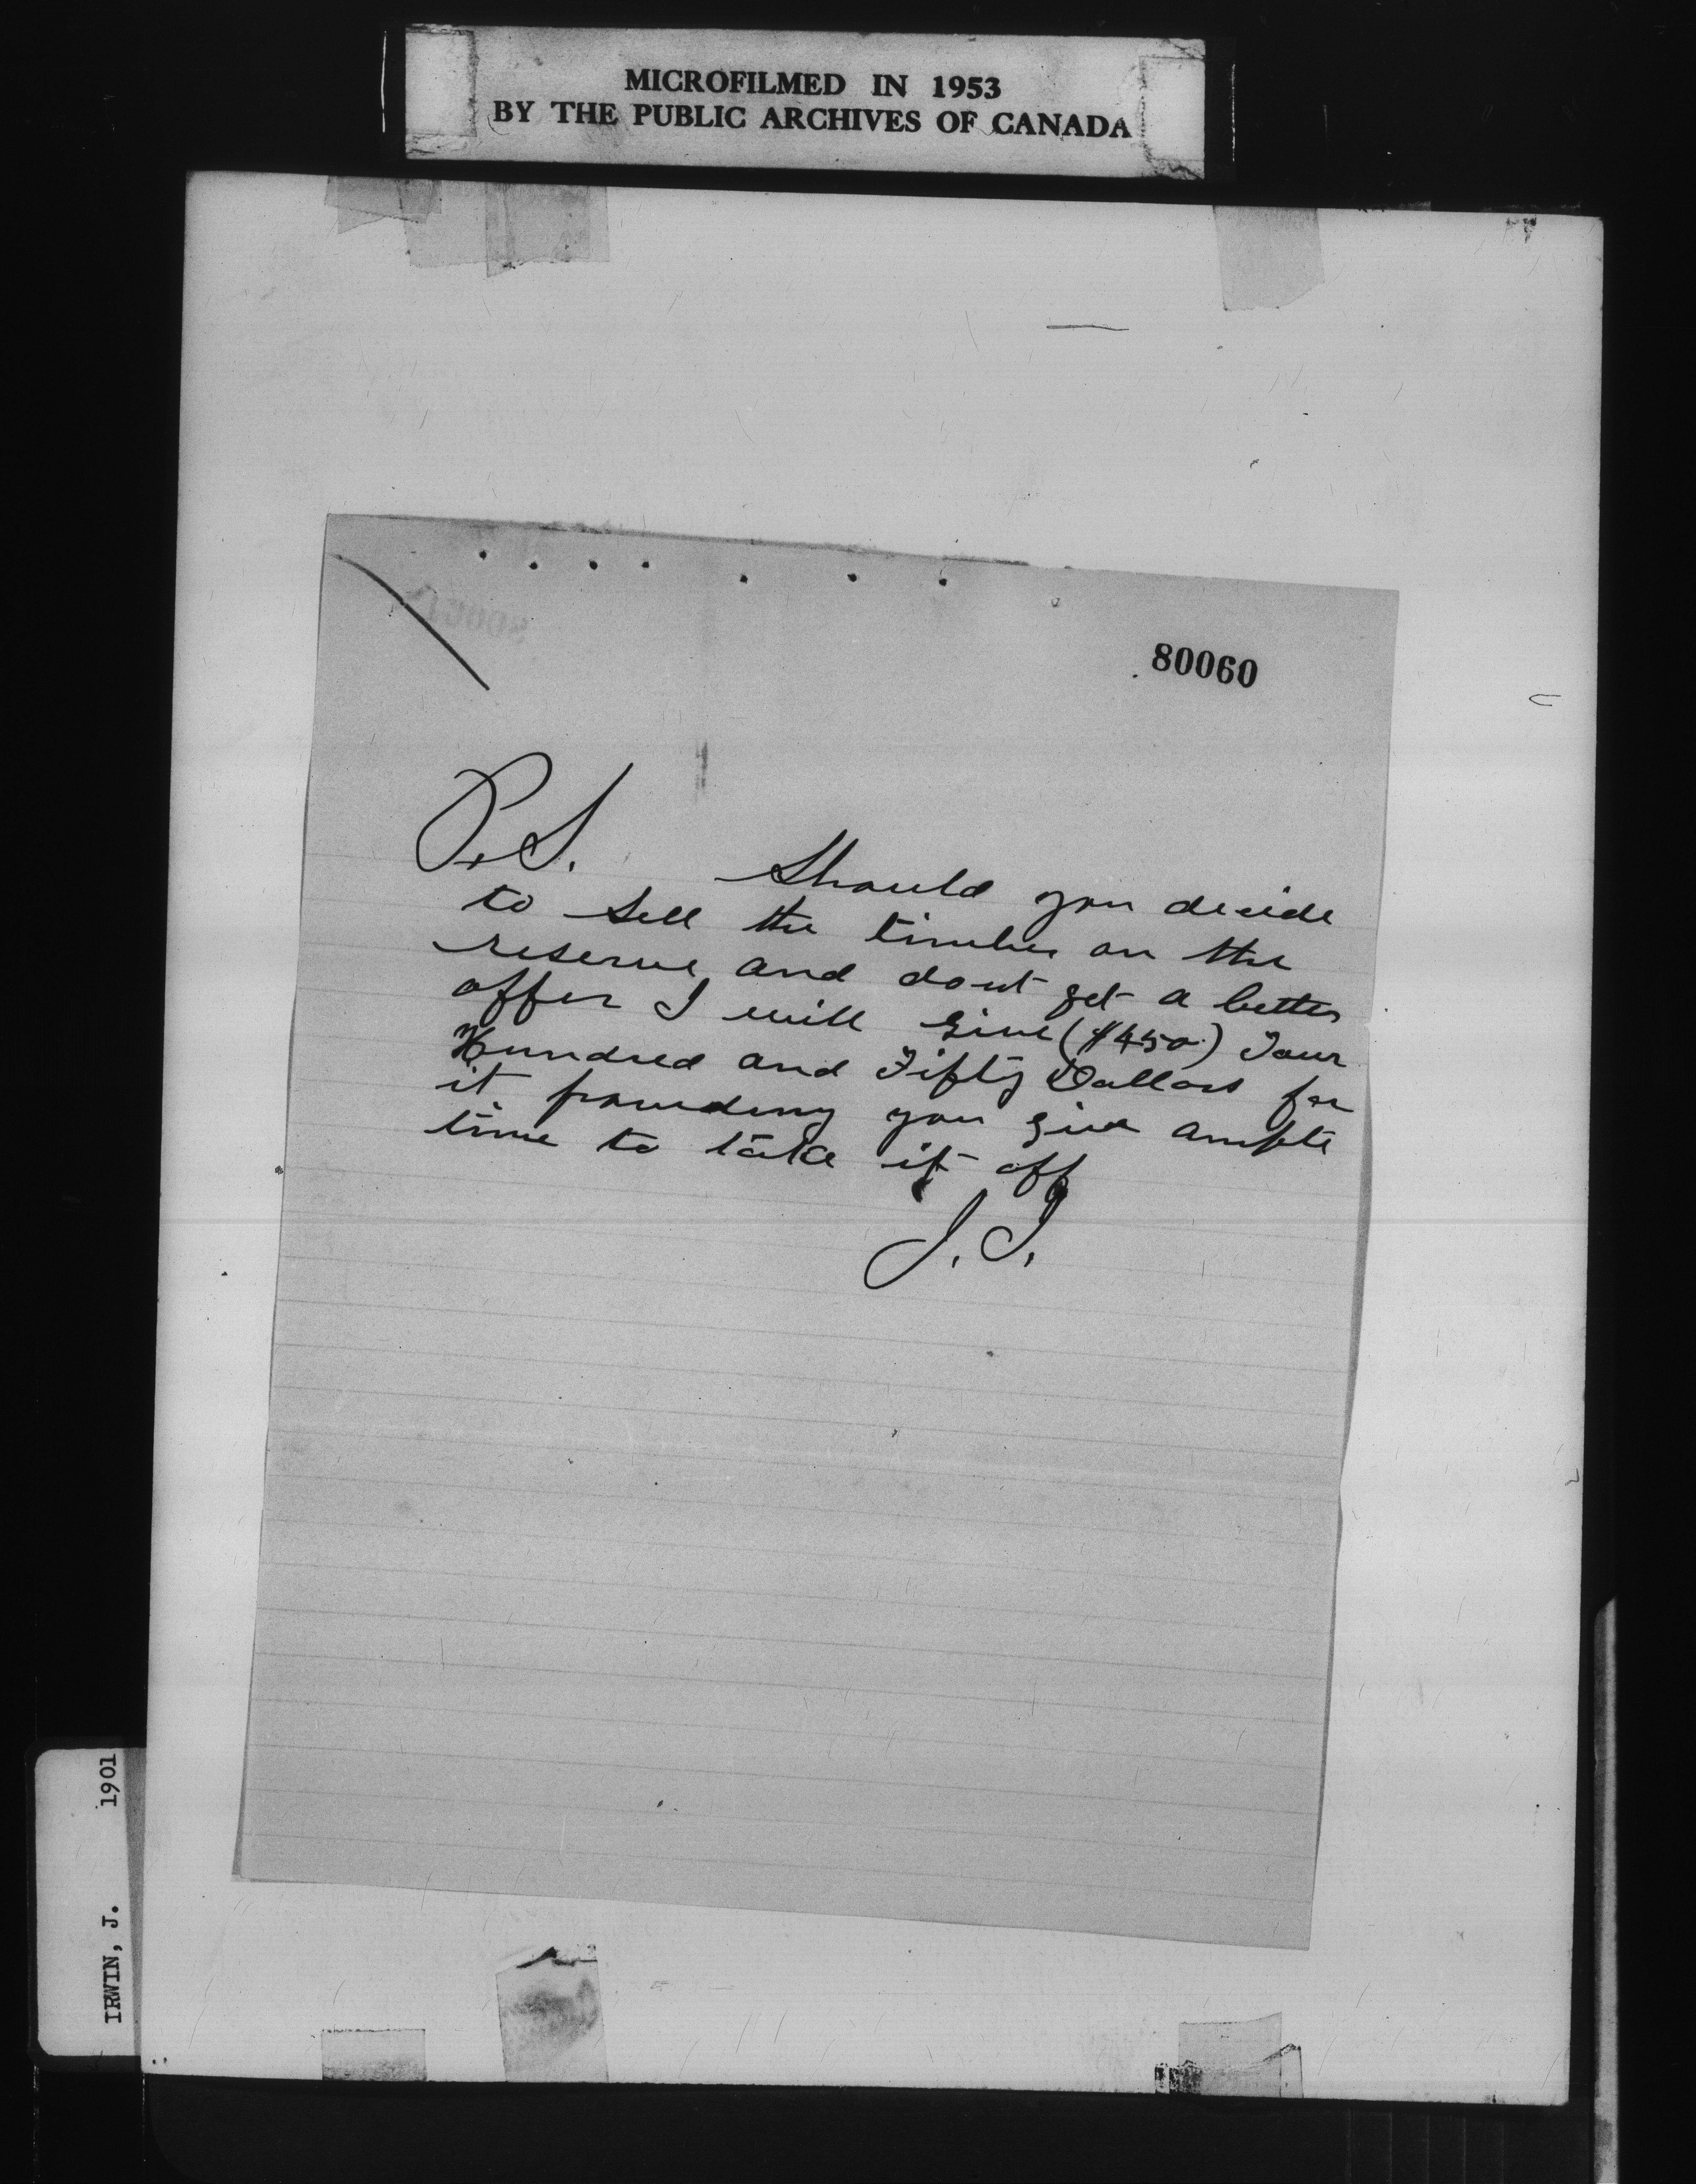 MICROFILMED IN 1953
BY THE PUBLIC ARCHIVES OF CANADA
80060
P.S. Should you decide
to sell the timber on the
reserve, and dont get a better
offer I will give ($450.) Four
Hundred and Fifty Dollars for
it providing you give ample
time to take it off
J. I.
IRWIN, J. 1901